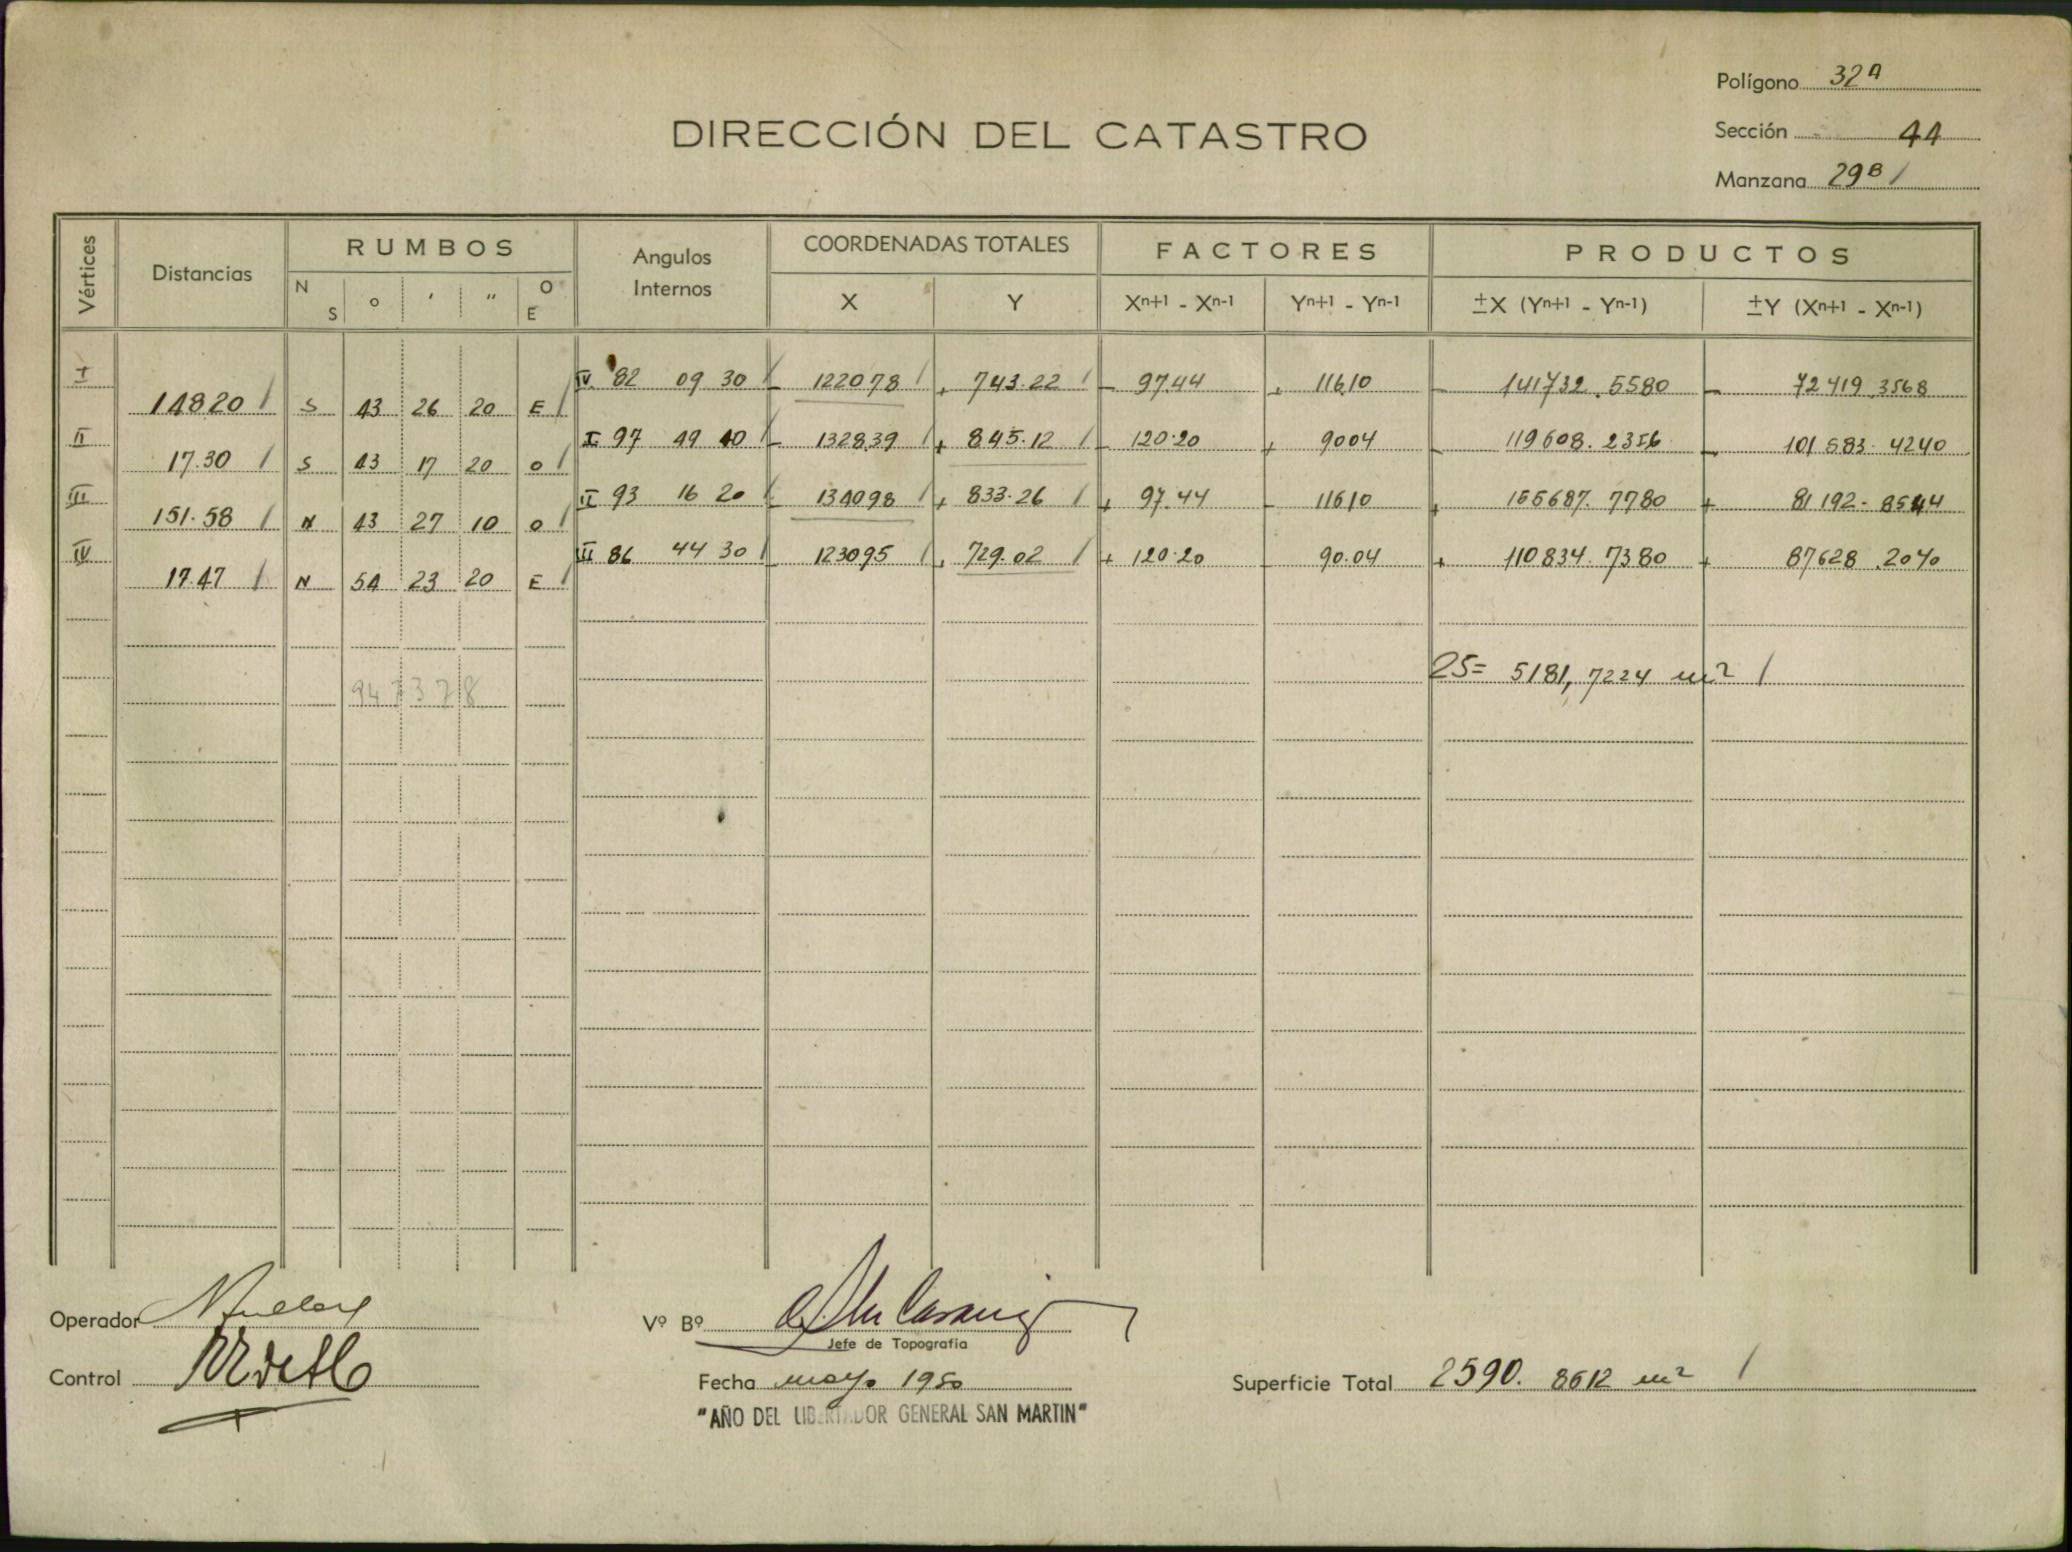 Polígono 32A
Sección 44
Manzana 29B /
DIRECCIÓN DEL CATASTRO
Vértices Distancias RUMBOS Angulos Internos COORDENADAS TOTALES FACTORES PRODUCTOS
N S ° ' " O E X Y Xn+1 - Xn-1 Yn+1 - Yn-1 ±X (Yn+1 - Yn-1) ±Y (Xn+1 - Xn-1)
I IV 82 09 30 / - 122078 / + 743.22 / - 97.44 + 116.10 - 141732.5580 - 72419.3568
148.20 / S 43 26 20 E /
II I 97 49 40 / - 1328.39 / + 845.12 / - 120.20 + 90.04 - 119608.2356 - 101583.4240
17.30 / S 43 17 20 O /
III II 93 16 20 / - 134098 / + 833.26 / + 97.44 - 116.10 + 155687.7780 + 81192.8544
151.58 / N 43 27 10 O /
IV III 86 44 30 / - 123095 / + 729.02 / + 120.20 - 90.04 + 110834.7380 + 87628.2040
17.47 / N 54 23 20 E /
2S= 5181,7224 m² /
Operador
Control
Vº Bº
Jefe de Topografía
Fecha mayo 1950
"AÑO DEL LIBERTADOR GENERAL SAN MARTIN"
Superficie Total 2590.8612 m² /